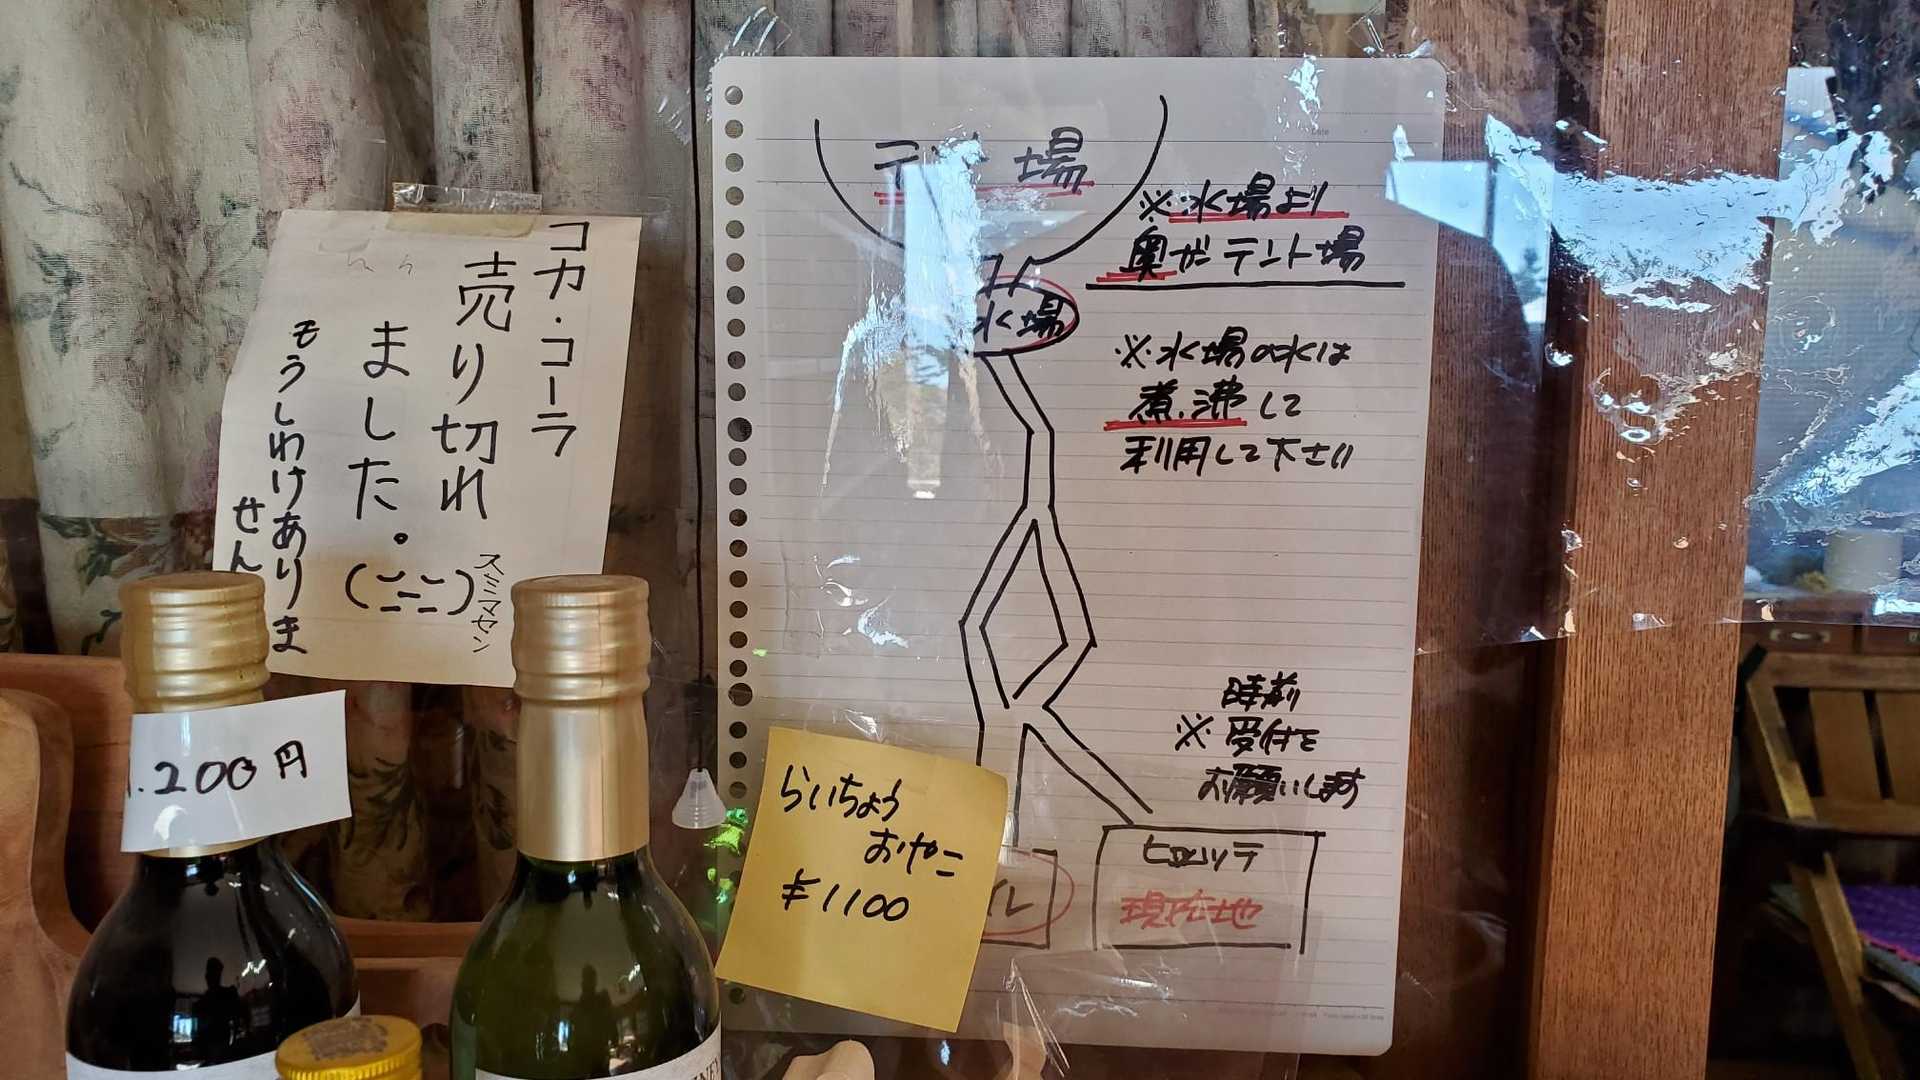 コカ・コーラ
売り切れ
ました。
スミマセン
もうしわけありま
せん
.200円
場
※水場より
奥がテント場
水場
※水場の水は
煮沸して
利用して下さい
事前
※受付を
お願いします
ヒュッテ
現在地
らいちょう
おやこ
¥1100
イレ